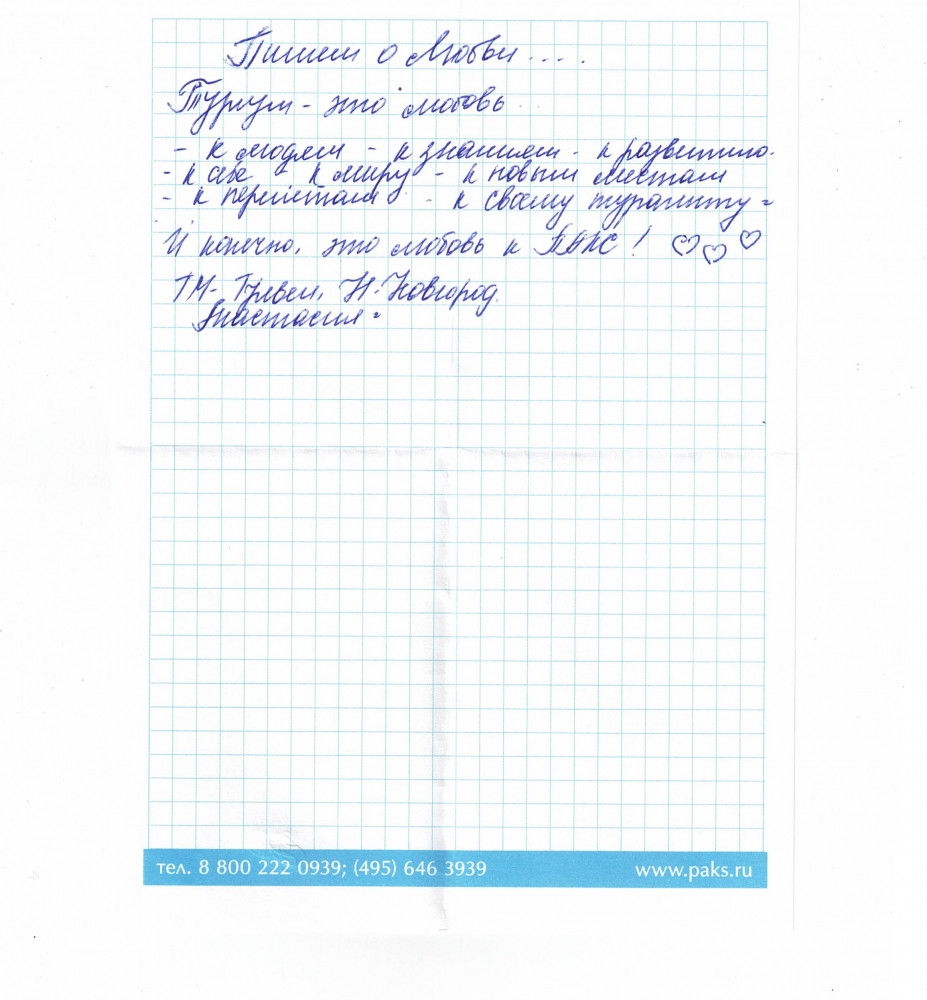 Пишем о Любви....
Туризм - это любовь...
- к людям - к знаниям - к развитию.
- к себе - к миру - к новым местам
- к перелётам - к своему турагенту
И конечно, это любовь к ПАКС! ♡♡♡
ТМ- Н-Новгород.
Анастасия
тел. 8 800 222 0939; (495) 646 3939
www.paks.ru